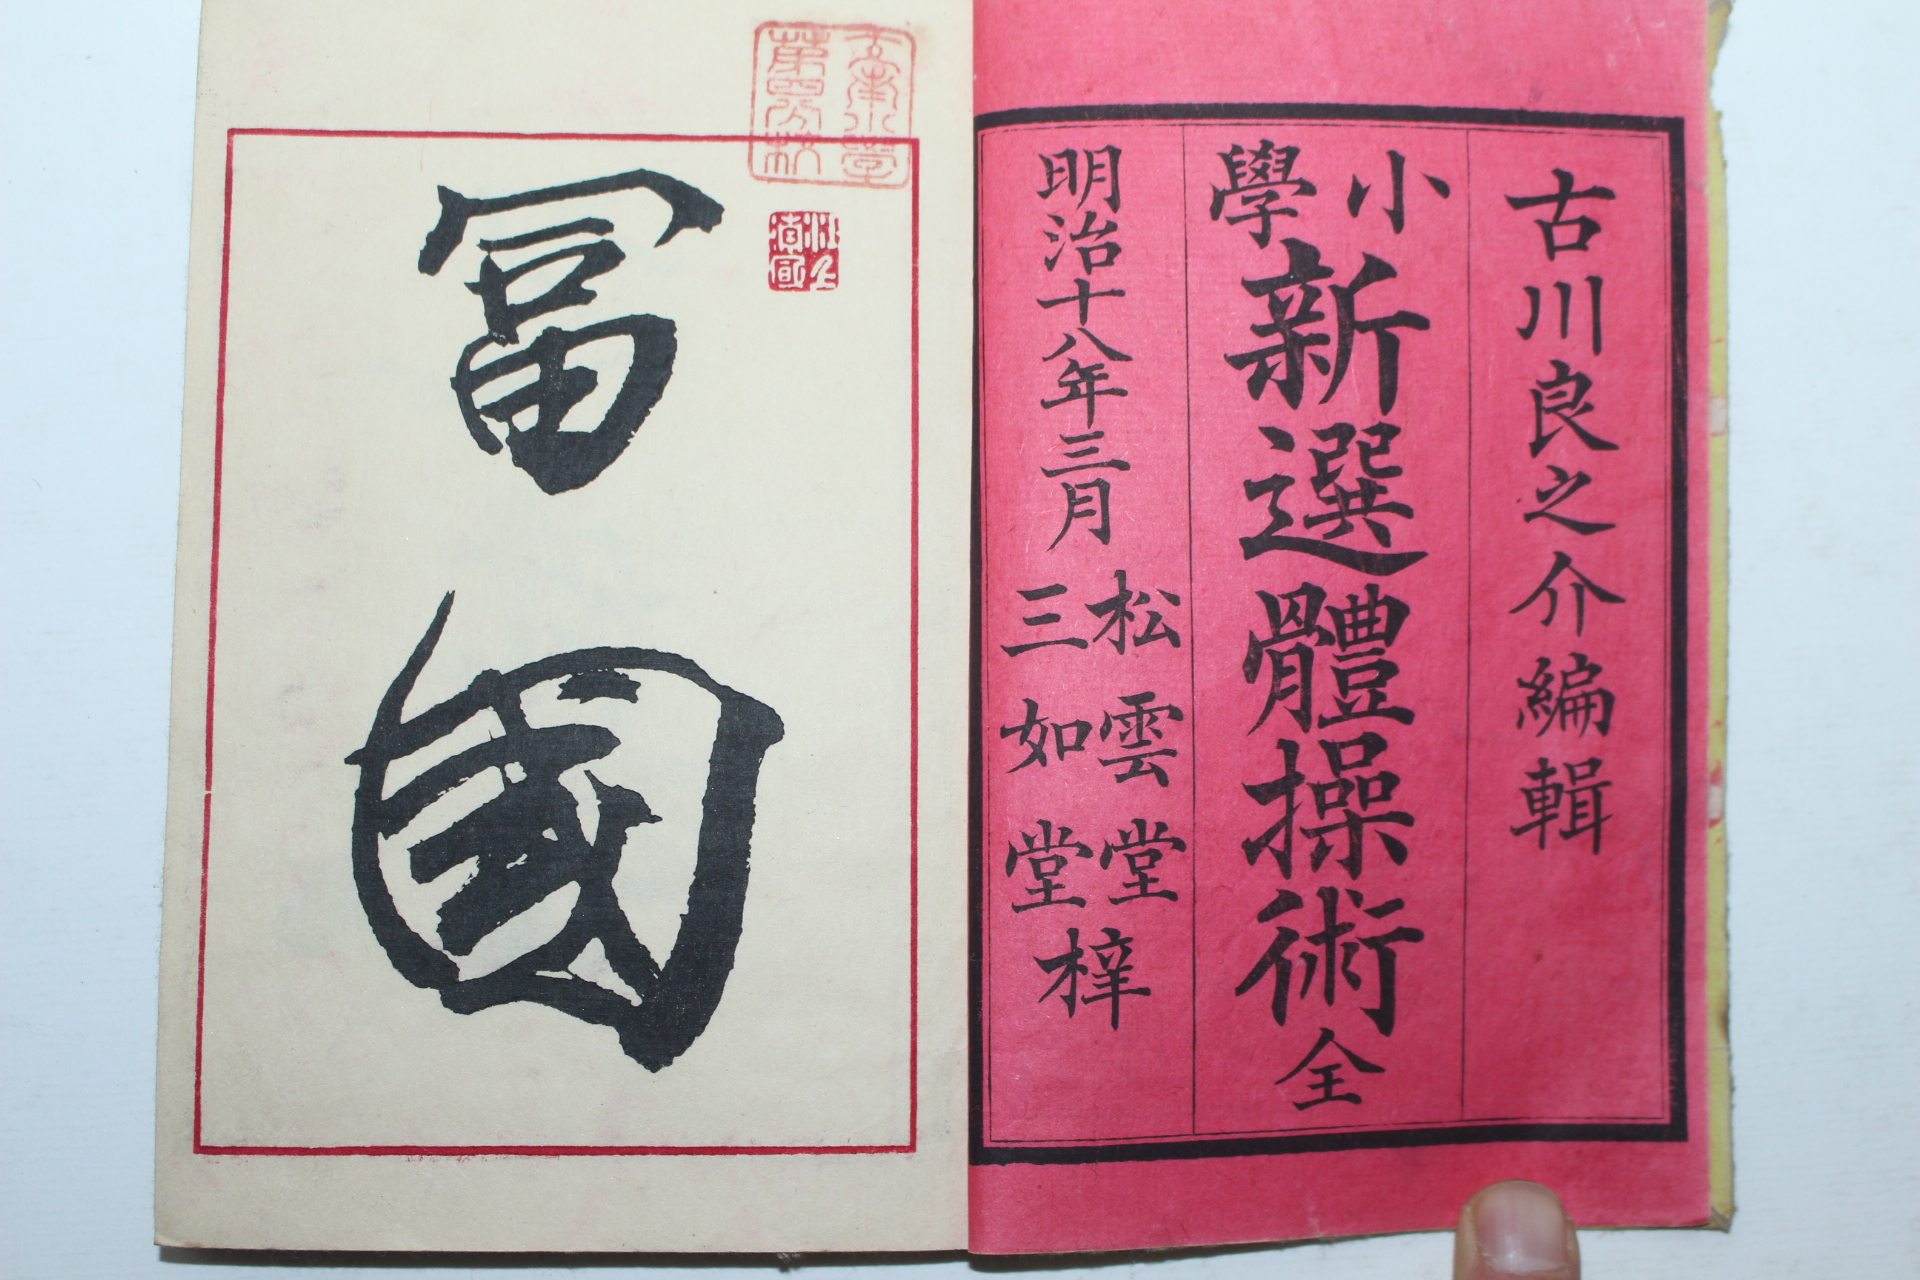 古川良之介編輯
小學
新選體操術全
明治十八年三月
松雲堂
三如堂
梓
冨國